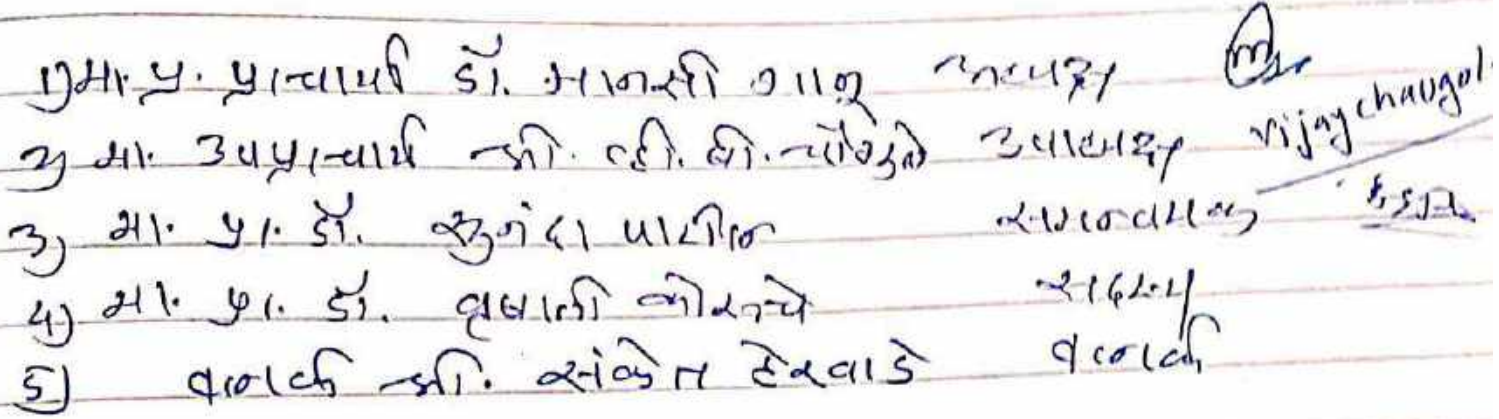 १) मा. प्र. प्राचार्य डॉ. मानसी गानू अध्यक्ष
२) मा. उपप्राचार्य श्री. व्ही. बी. चौगुले उपाध्यक्ष vijay chaugul
३) मा. प्रा. डॉ. सुनंदा पाटील समन्वयक
४) मा. प्रा. डॉ. वृषाली सदस्य
५) क्लार्क श्री. संकेत हेरवाडे क्लार्क